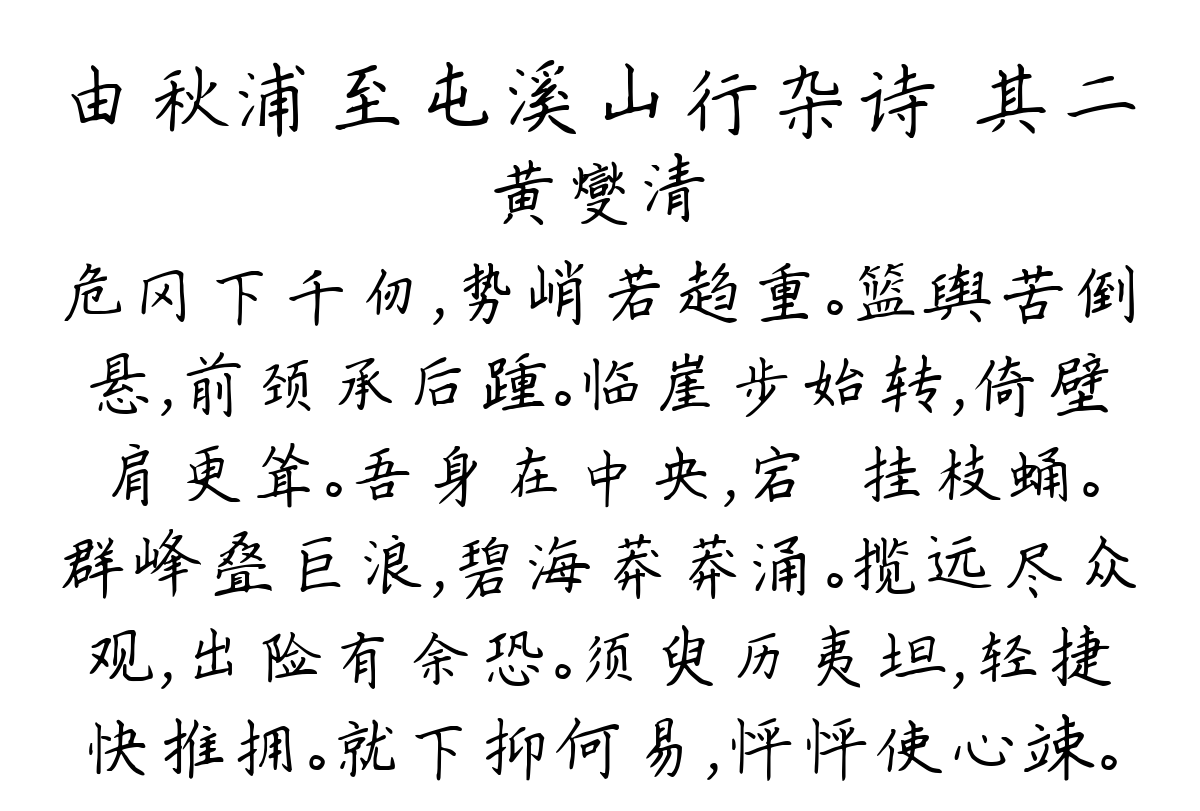 由秋浦至屯溪山行杂诗 其二
黄燮清
危冈下千仞,势峭若趋重。篮舆苦倒
悬,前颈承后踵。临崖步始转,倚壁
肩更耸。吾身在中央,宕 挂枝蛹。
群峰叠巨浪,碧海莽莽涌。揽远尽众
观,出险有余恐。须臾历夷坦,轻捷
快推拥。就下抑何易,怦怦使心竦。